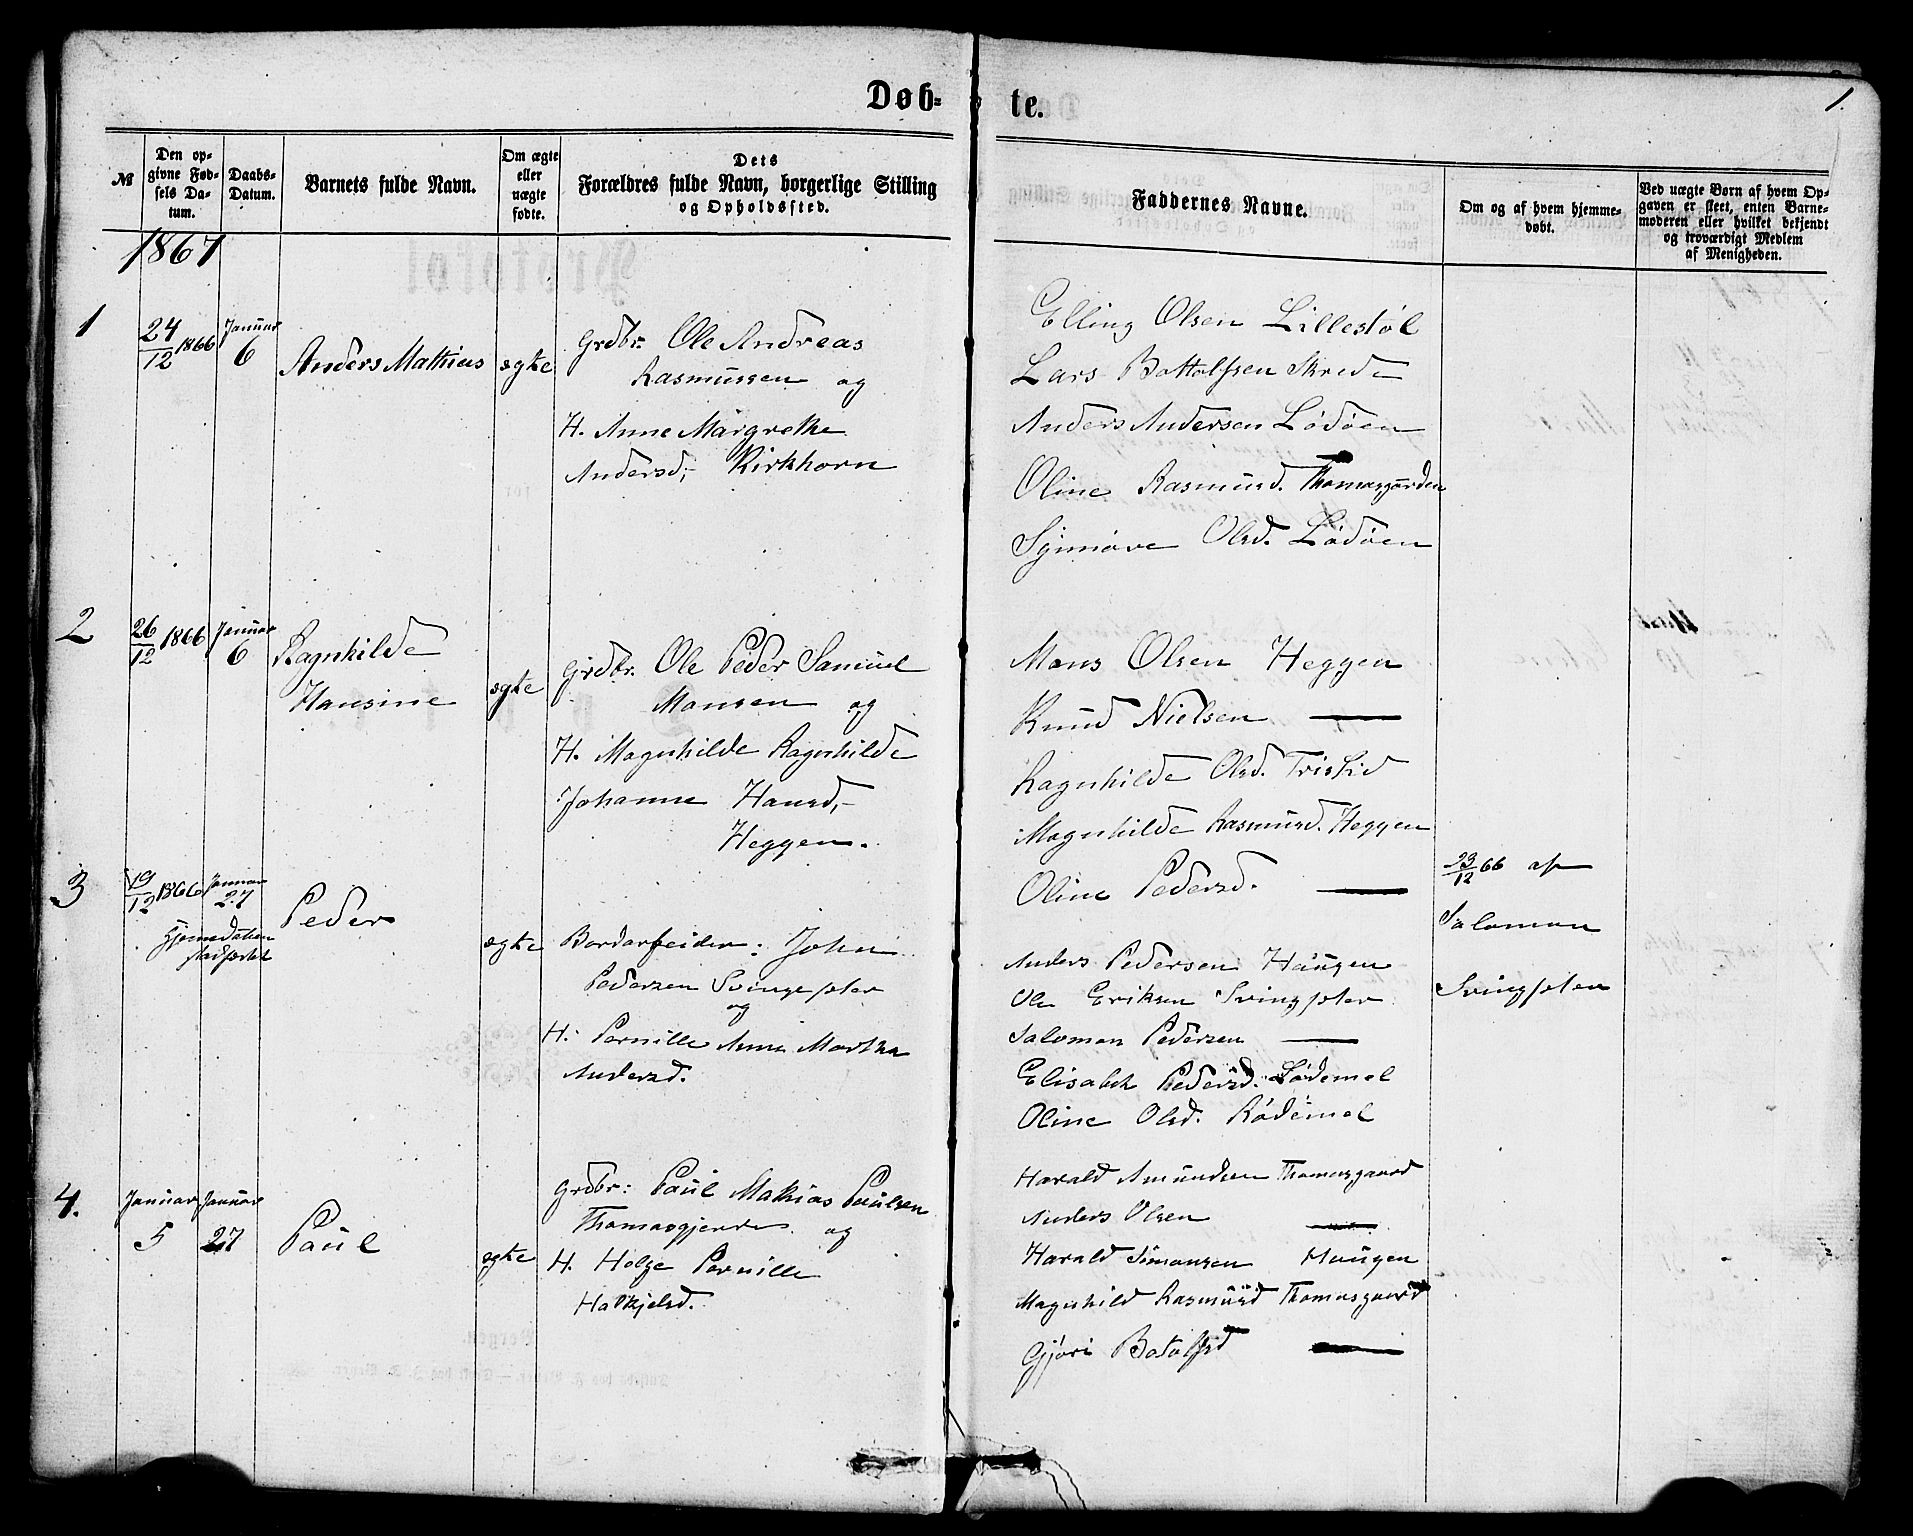 Døb-te.
1.
№
Den op-
givne Fød-
sels Da-
tum.
Daabs-
Datum.
Barnets fulde Navn.
Om ægte
eller
uægte
fødte.
Dets
Forældres fulde Navn, borgerlige Stilling
og Opholdssted.
Faddernes Navne.
Om og af hvem hjemme-
døbt.
Ved uægte Børn af hvem Op-
gaven er skeet, enten Barne-
moderen eller hvilket bekjendt
og troværdigt Medlem
af Menigheden.
1867
1
24/12 1866
Januar
6
Anders Mathias
ægte
Grdbr: Ole Andreas
Rasmussen og
H. Anne Margrethe
Andersd,- Kirkhorn
Elling Olsen Lillestøl
Lars Bottolfsen Skrede
Anders Andersen Lødøen
Oline Rasmusd. Thomasgarden
Synnøve Olsd. Lødøen
2
26/12 1866
Januar
6
Ragnhilde
Hansine
ægte
Grdbr. Ole Peder Samuel
Monsen og
H. Magnhilde Ragnhilde
Johanne Hansd,-
Heggen.
Mons Olsen Heggen
Knud Nielsen —
Ragnhilde Olsd.
Magnhilde Rasmusd. Heggen
Oline Pedersd. —
3
19/12 1866
Januar
27
Hjemmedaaben
stadfæstet
Peder
ægte
Bordarbeider: John
Pedersen
og
H: Pernille Anne Martha
Andersd.
Anders Pedersen Haugen
Ole Eriksen
Salomon Pedersen —
Elisabeth Pedersd. Lødemel
Oline Olsd. Lødemel
23/12 66 af
Salomon
4.
Januar
5
Januar
27
Paul
ægte
Grdbr: Paul Mathias Paulsen
Thomasgjerde og
H. Helge Pernille
Halkjelsd.
Harald Amundsen Thomasgaard
Anders Olsen —
Harald Simonsen Haugen
Magnhild Rasmusd Thomasgaard
Gjøri Botolfsd —